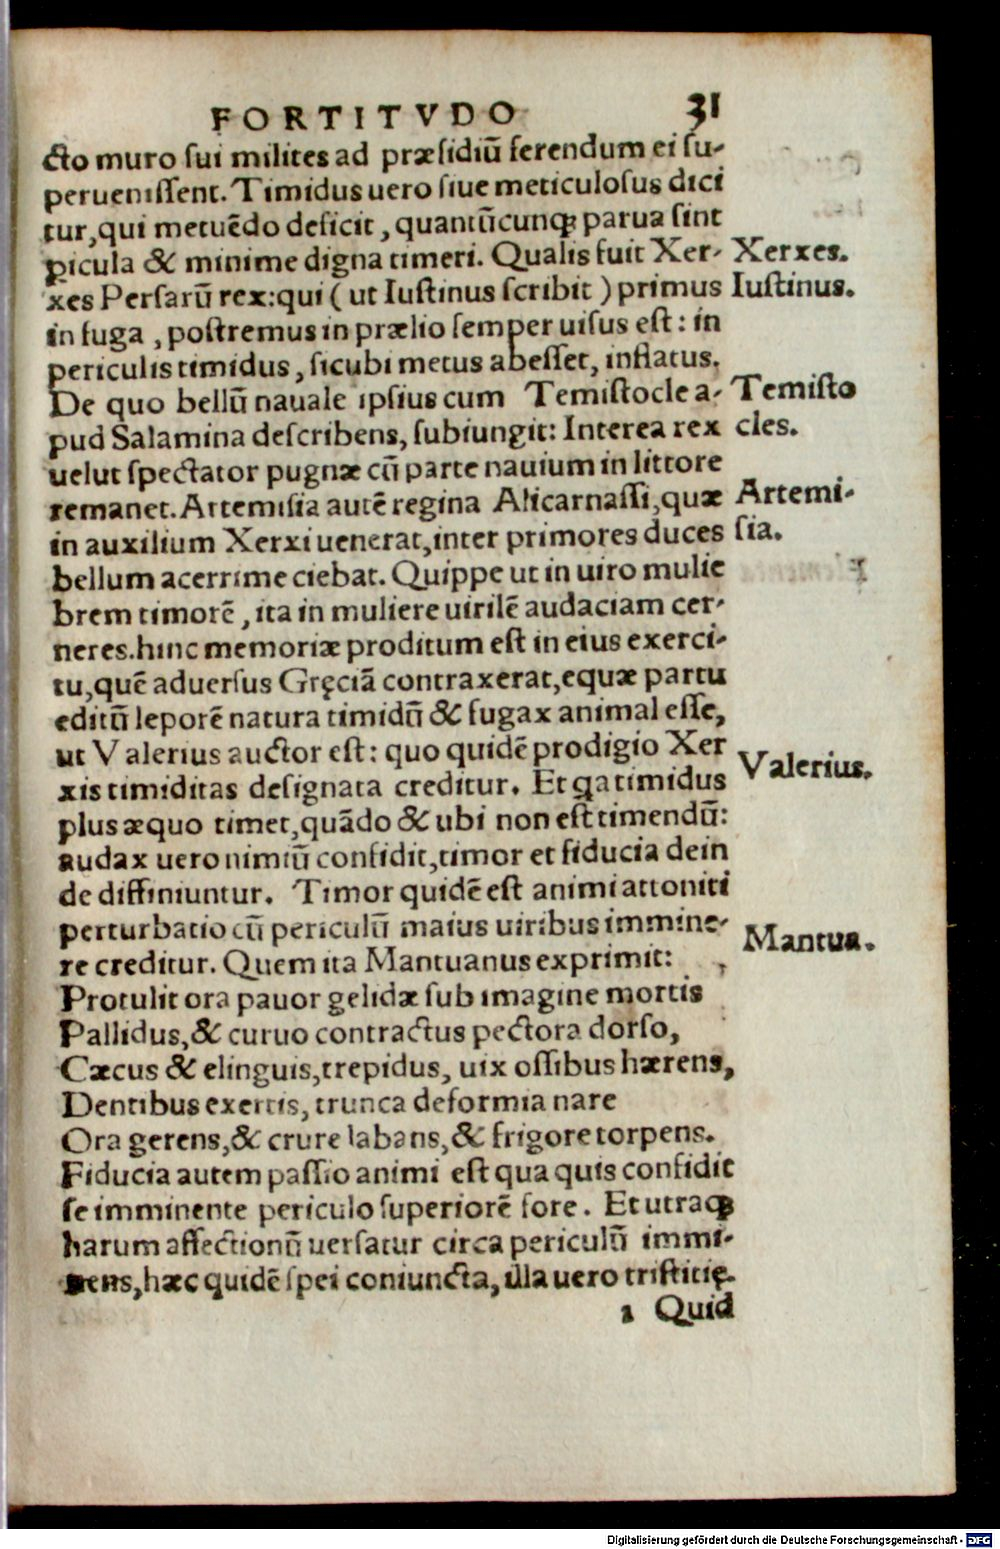 FORTITVDO 31
cto muro sui milites ad præsidiũ ferendum ei su-
peruenissent. Timidus uero siue meticulosus dici
tur, qui metuẽdo deficit, quantũcunqꝫ parua sint
ꝑicula & minime digna timeri. Qualis fuit Xer- Xerxes.
xes Persarũ rex: qui ( ut Iustinus scribit ) primus Iustinus.
in fuga, postremus in prælio semper uisus est: in
periculis timidus, sicubi metus abesset, inflatus.
De quo bellũ nauale ipsius cum Temistocle a- Temisto
pud Salamina describens, subiungit: Interea rex cles.
uelut spectator pugnæ cũ parte nauium in littore
remanet. Artemisia autẽ regina Alicarnassi, quæ Artemi-
in auxilium Xerxi uenerat, inter primores duces sia.
bellum acerrime ciebat. Quippe ut in uiro mulie
brem timorẽ, ita in muliere uirilẽ audaciam cer-
neres. hinc memoriæ proditum est in eius exerci-
tu, quẽ aduersus Gręciã contraxerat, equæ partu
editũ leporẽ natura timidũ & fugax animal esse,
ut Valerius auctor est: quo quidẽ prodigio Xer
xis timiditas designata creditur. Et ꝗa timidus Valerius.
plus æquo timet, quãdo & ubi non est timendũ:
audax uero nimiũ confidit, timor et fiducia dein
de diffiniuntur. Timor quidẽ est animi attoniti
perturbatio cũ periculũ maius uiribus immine- Mantua.
re creditur. Quem ita Mantuanus exprimit:
Protulit ora pauor gelidæ sub imagine mortis
Pallidus, & curuo contractus pectora dorso,
Cæcus & elinguis, trepidus, uix ossibus hærens,
Dentibus exertis, trunca deformia nare
Ora gerens, & crure labans, & frigore torpens.
Fiducia autem passio animi est qua quis confidit
se imminente periculo superiorẽ fore. Et utraqꝫ
harum affectionũ uersatur circa periculũ immi-
nens, hæc quidẽ spei coniuncta, illa uero tristitię.
Quid
Digitalisierung gefördert durch die Deutsche Forschungsgemeinschaft - DFG